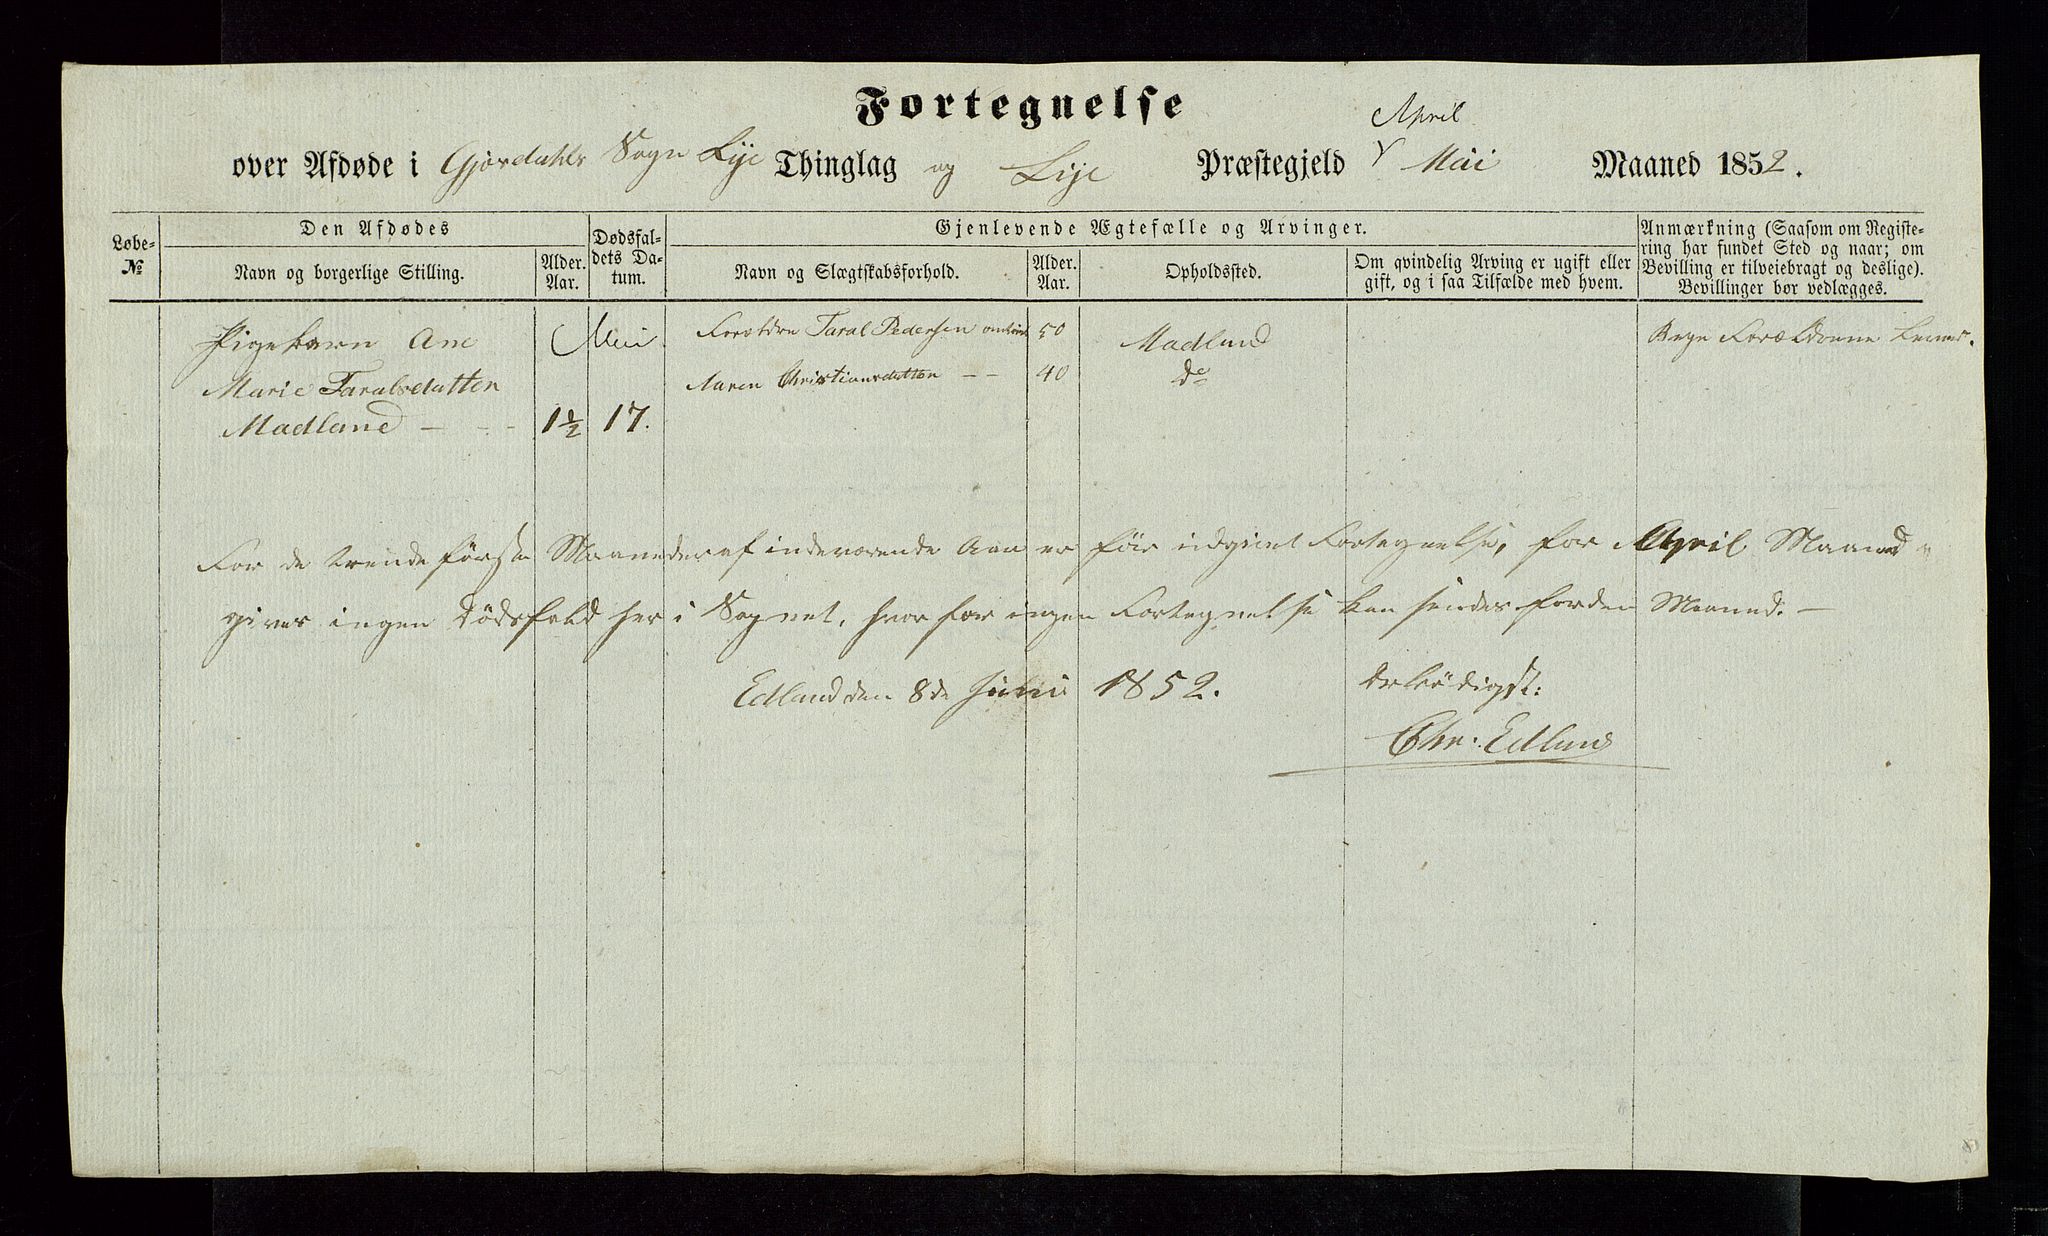 Fortegnelse
April
over Afdøde i Gjæsdahls Sogn Lÿe Thinglag og Lije Præstegjeld Y Mai Maaned 1852.
Løbe-
№
Den Afdødes
Navn og borgerlige Stilling.
Alder.
Aar.
Dødsfal-
dets Da-
tum.
Gjenlevende Ægtefælle og Arvinger.
Navn og Slægtskabsforhold.
Alder.
Aar.
Opholdssted.
Om qvindelig Arving er ugift eller
gift, og i saa Tilfælde med hvem.
Anmærkning (Saasom om Registe-
ring har fundet Sted og naar; om
Bevilling er tilveiebragt og deslige).
Bevillinger bør vedlægges.
Pigebarn Ane Mai Forældre Taral Pedersen omtrent 50 Madland Begge Forældrene lever.
Marie Taralsdatter Karen Christiansdatter - - 40 do
Madland - - - 1½ 17.
For de trende første Maaneder af indeværende Aar er før indgivet Fortegnelse, for April Maaned
gives ingen Dødsfald her i Sognet, hvorfor ingen Fortegnelse kan sendes for den Maaned. -
Edland den 8de Juni 1852. Ærbødigst:
Chr. Edland